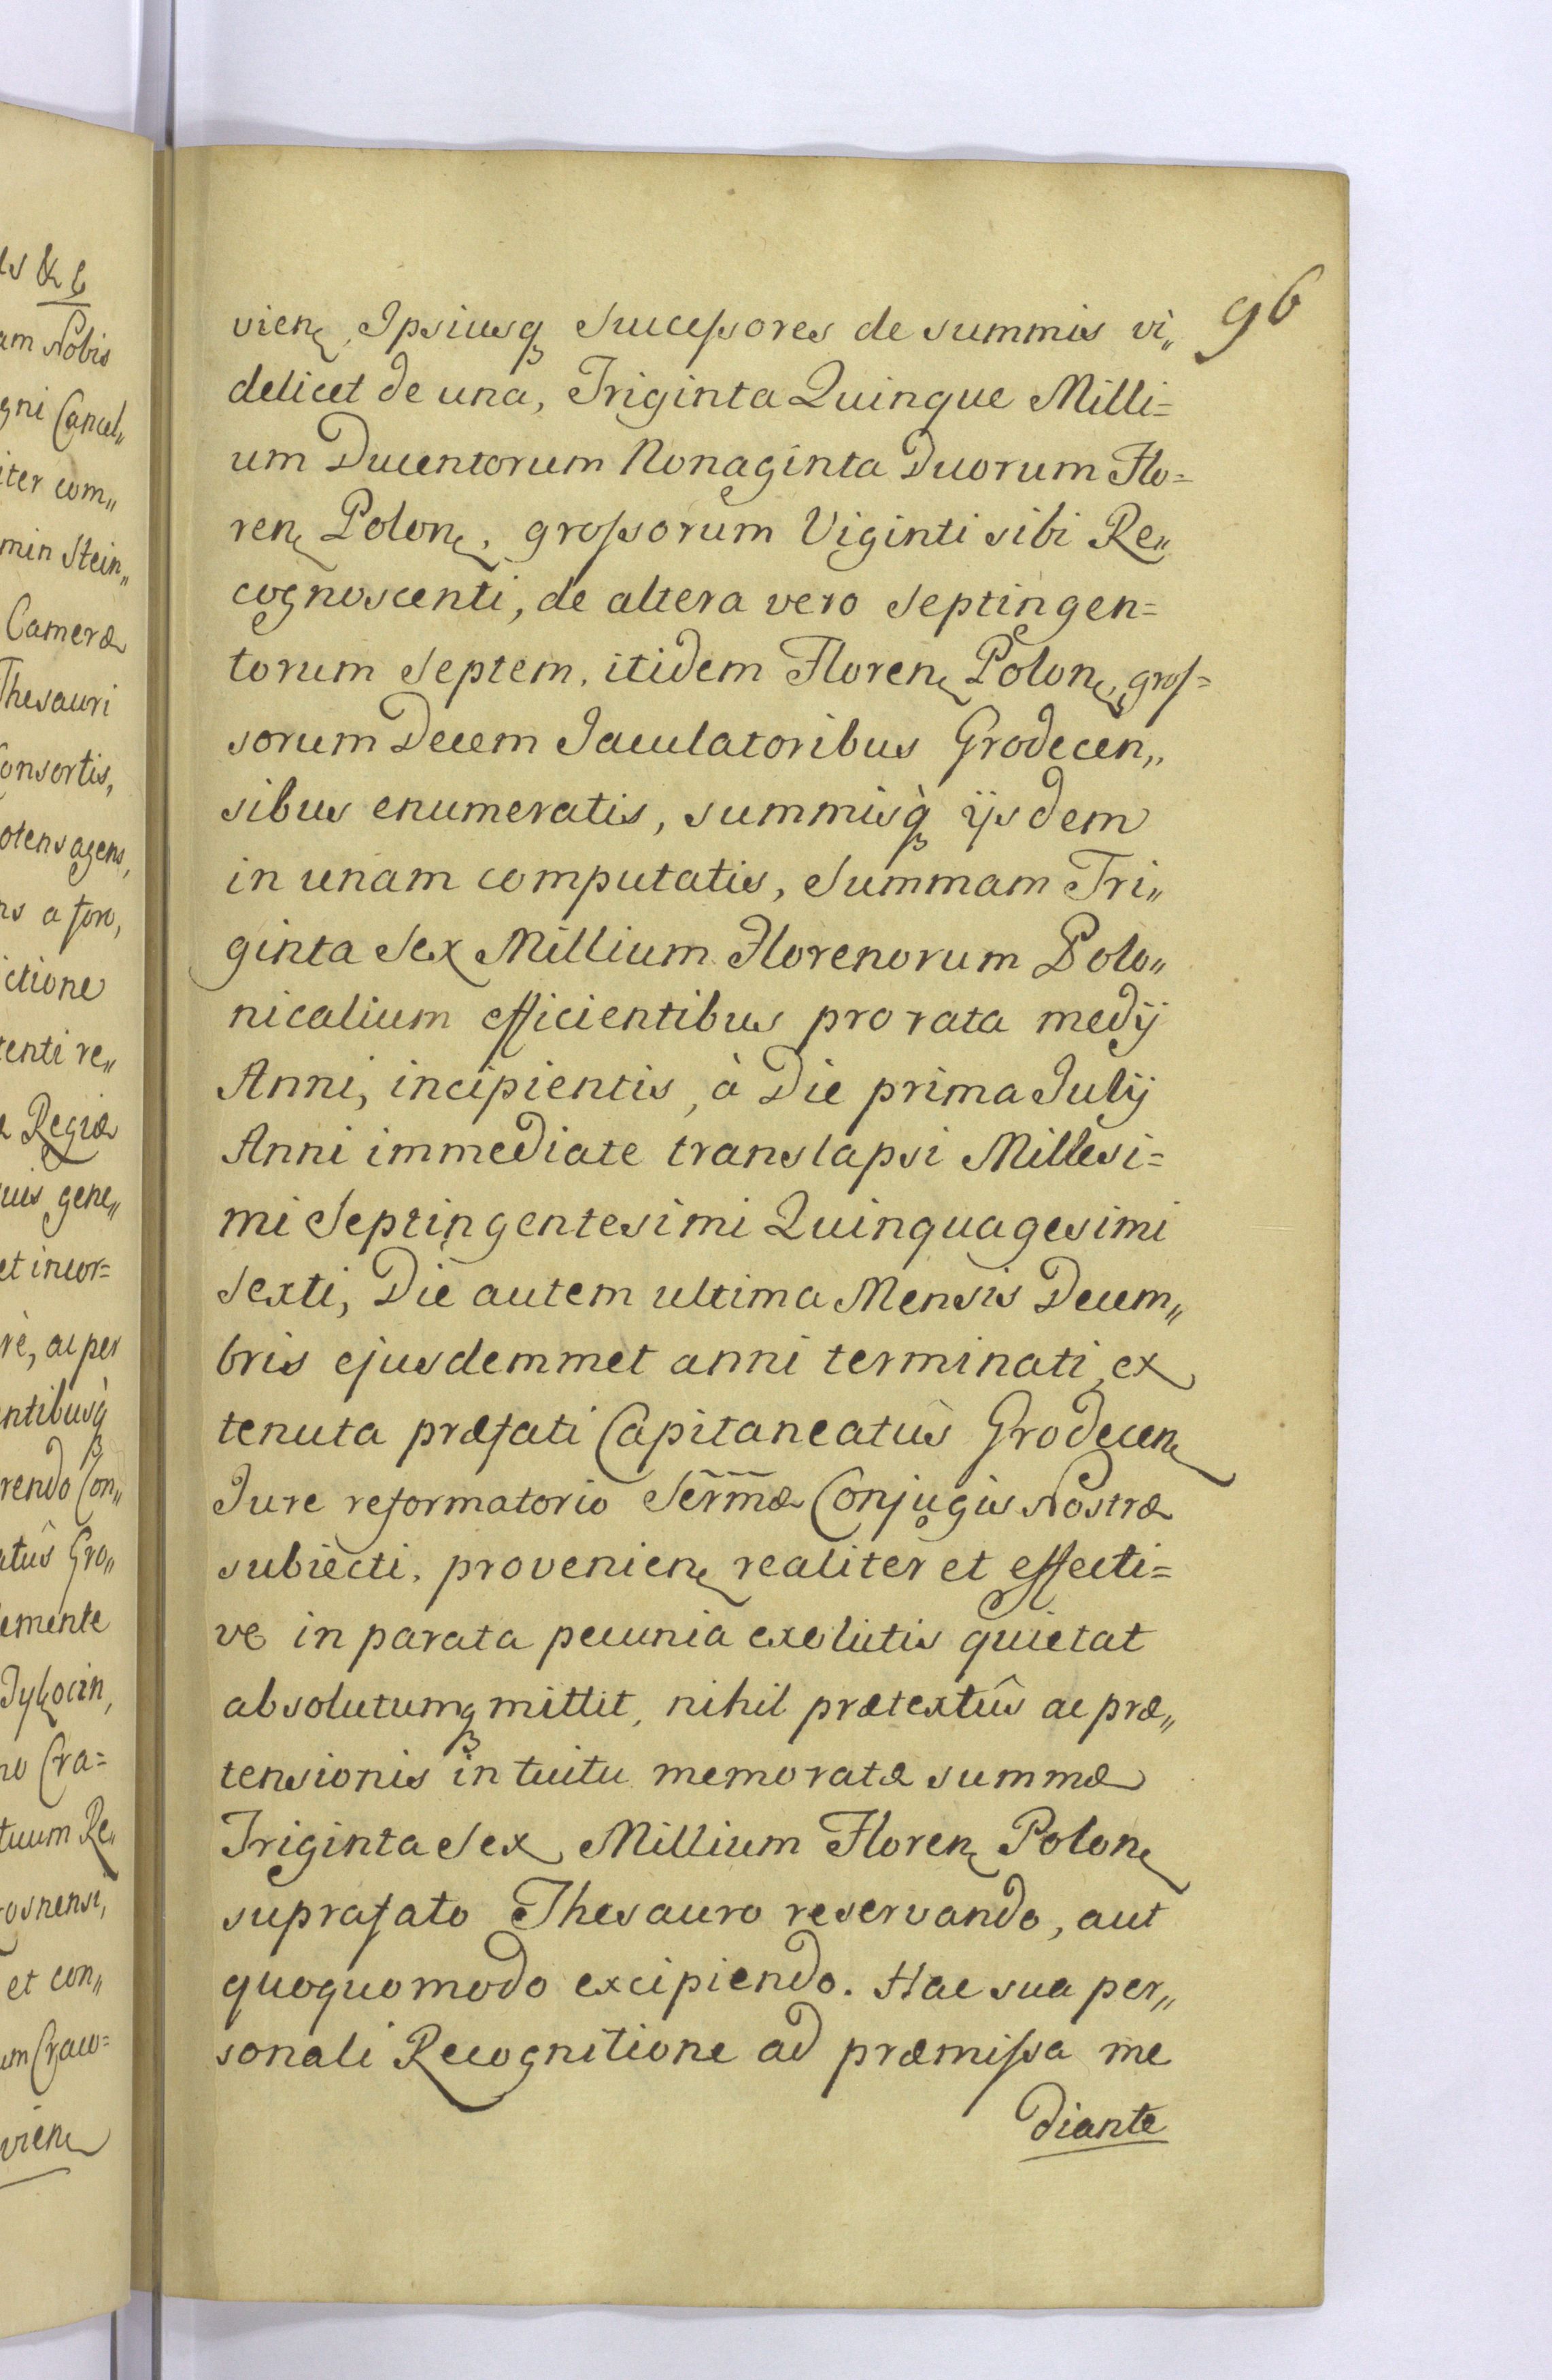 96
vien, Ipsiusq Successores de summis vi„
delicet de una, Triginta Quinque Milli=
um Ducentorum Nonaginta Duorum Flo=
ren Polon, grossorum Viginti sibi Re„
cognoscenti, de altera vero Septingen=
torum Septem, itidem Floren Polon, gros=
sorum Decem Jaculatoribus Grodecen„
sibus enumeratis, summisq̀ ijsdem
in unam computatis, Summam Tri„
ginta Sex Millium Florenorum Polo„
nicalium efficientibus pro rata medij
Anni, incipientis, à Die prima Julij
Anni immediate translapsi Millesi=
mi Septingentesimi Quinquagesimi
Sexti, Die autem ultima Mensis Decem„
bris ejusdemmet anni terminati, ex
tenuta præfati Capitaneatûs Grodecen
Jure reformatorio Serm̃æ Conjugis Nostræ
subiecti, provenien realiter et effecti=
ve in parata pecunia exolutis quietat
absolutumq mittit, nihil prætextûs ac præ„
tensionis intuitu memoratæ summæ
Triginta Sex Millium Floren Polon
suprafato Thesauro reservando, aut
quoquomodo excipiendo. Hac sua per„
sonali Recognitione ad præmissa me
diante
ls &c
am Nobis
gni Cancel„
iter com„
min Stein„
Cameræ
Thesauri
Consortis,
otens agens,
ns a foro,
ictione
tenti re„
Regiæ
uis gene„
et incor=
rè, ac per
ntibusq̀
rendo Con„
atûs Gro„
lemente
Tykocin,
no Cra=
tuum Re„
rosnensi,
et con„
um Craco=
vien